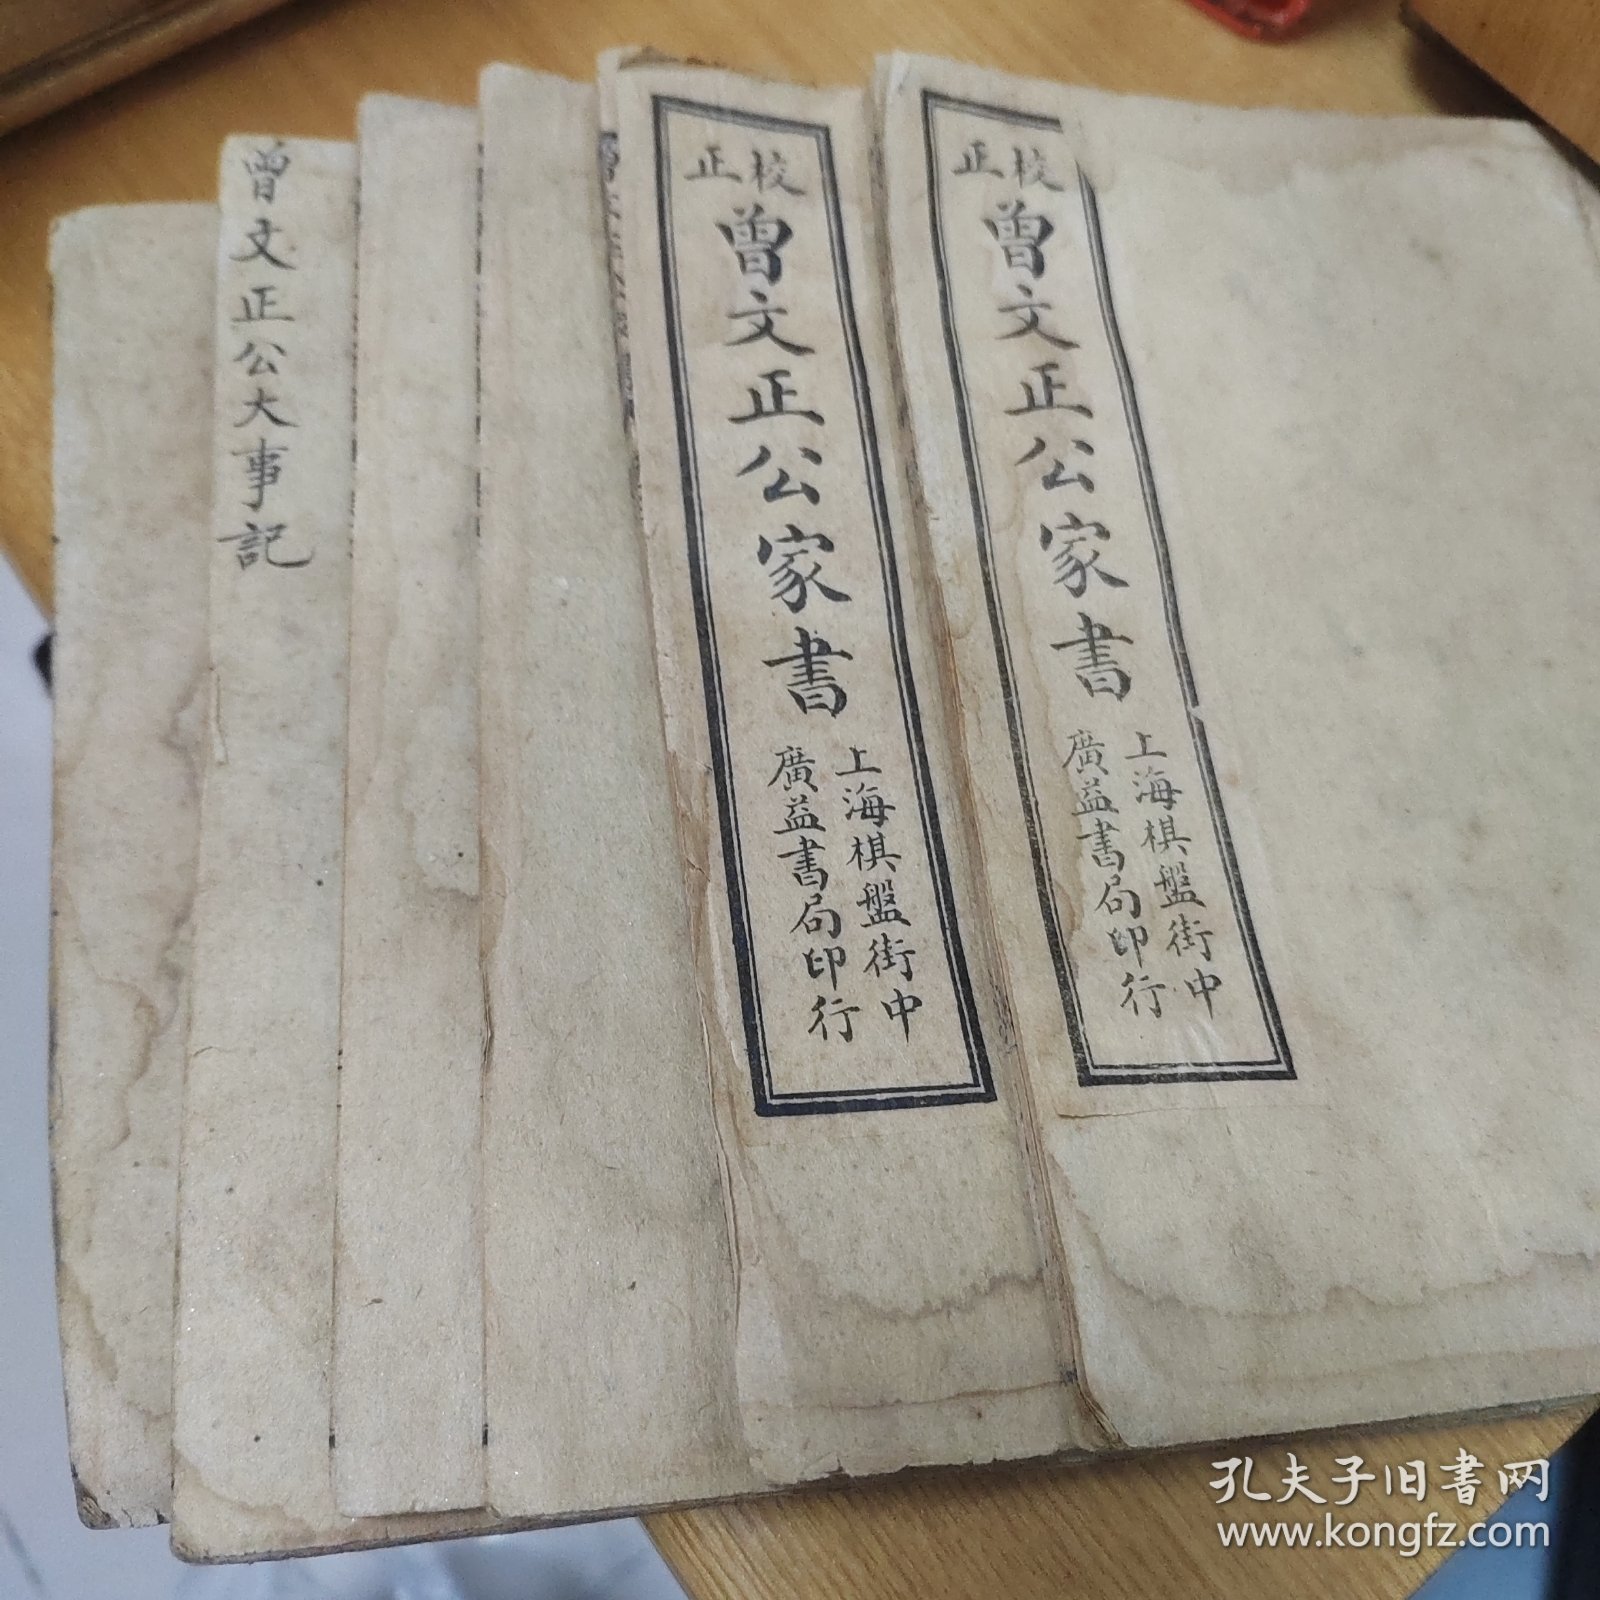 校正
曾文正公家書
上海棋盤街中
廣益書局印行
校正
曾文正公家書
上海棋盤街中
廣益書局印行
曾文正公大事記
孔夫子旧书网
www.kongfz.com